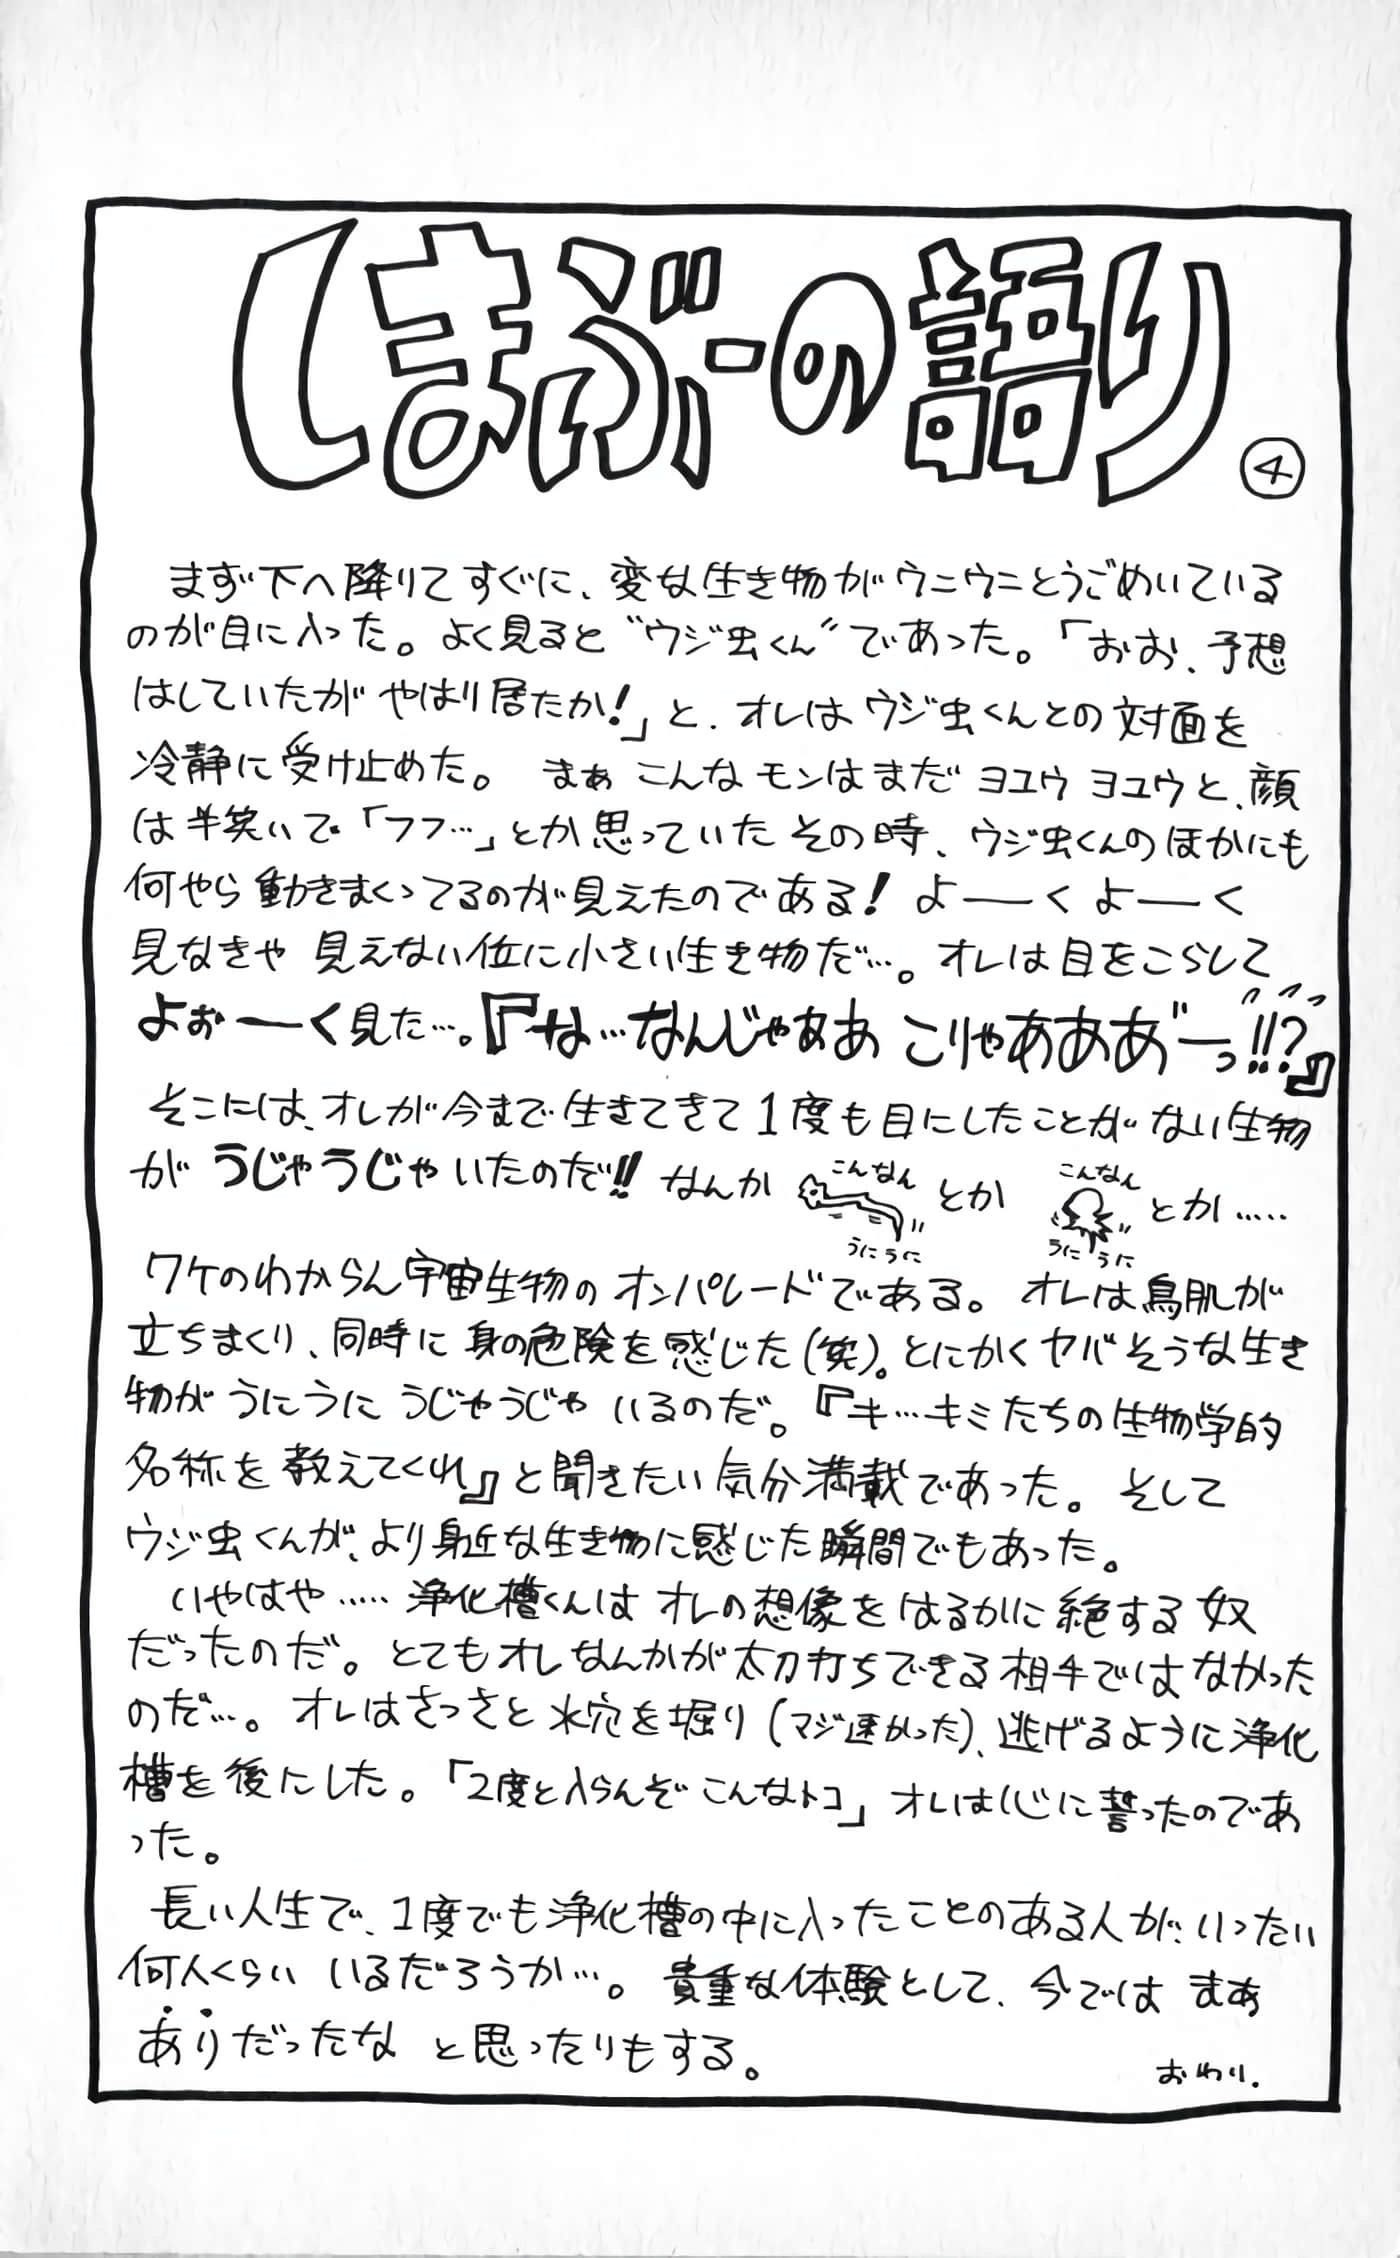 しまぶーの語り
④
まず下へ降りてすぐに、変な生き物がウニウニとうごめいている
のが目に入った。よく見ると“ウジ虫くん”であった。「おお、予想
はしていたがやはり居たか!」と、オレはウジ虫くんとの対面を
冷静に受け止めた。 まぁこんなモンはまだヨユウヨユウと、顔
は半笑いで「フフ…」とか思っていたその時、ウジ虫くんのほかにも
何やら動きまくってるのが見えたのである! よ――くよ――く
見なきゃ見えない位に小さい生き物だ…。オレは目をこらして
よぉ――く見た…。『な…なんじゃぁあ こりゃああああ゛ーっ!!?』
そこには、オレが今まで生きてきて1度も目にしたことがない生物
がうじゃうじゃいたのだ!! なんか こんなん とか こんなん とか……
うにうに うにうに
ワケのわからん宇宙生物のオンパレードである。 オレは鳥肌が
立ちまくり、同時に身の危険を感じた(笑)。とにかくヤバそうな生き
物がうにうにうじゃうじゃいるのだ。『キ…キミたちの生物学的
名称を教えてくれ』と聞きたい気分満載であった。 そして
ウジ虫くんが、より身近な生き物に感じた瞬間でもあった。
いやはや……浄化槽くんはオレの想像をはるかに絶する奴
だったのだ。とてもオレなんかが太刀打ちできる相手ではなかった
のだ…。オレはさっさと水穴を掘り(マジ速かった)、逃げるように浄化
槽を後にした。「2度と入らんぞこんなトコ」オレは心に誓ったのであ
った。
長い人生で、1度でも浄化槽の中に入ったことのある人が、いったい
何人くらいいるだろうか…。 貴重な体験として、今ではまぁ
ありだったなと思ったりもする。
おわり.